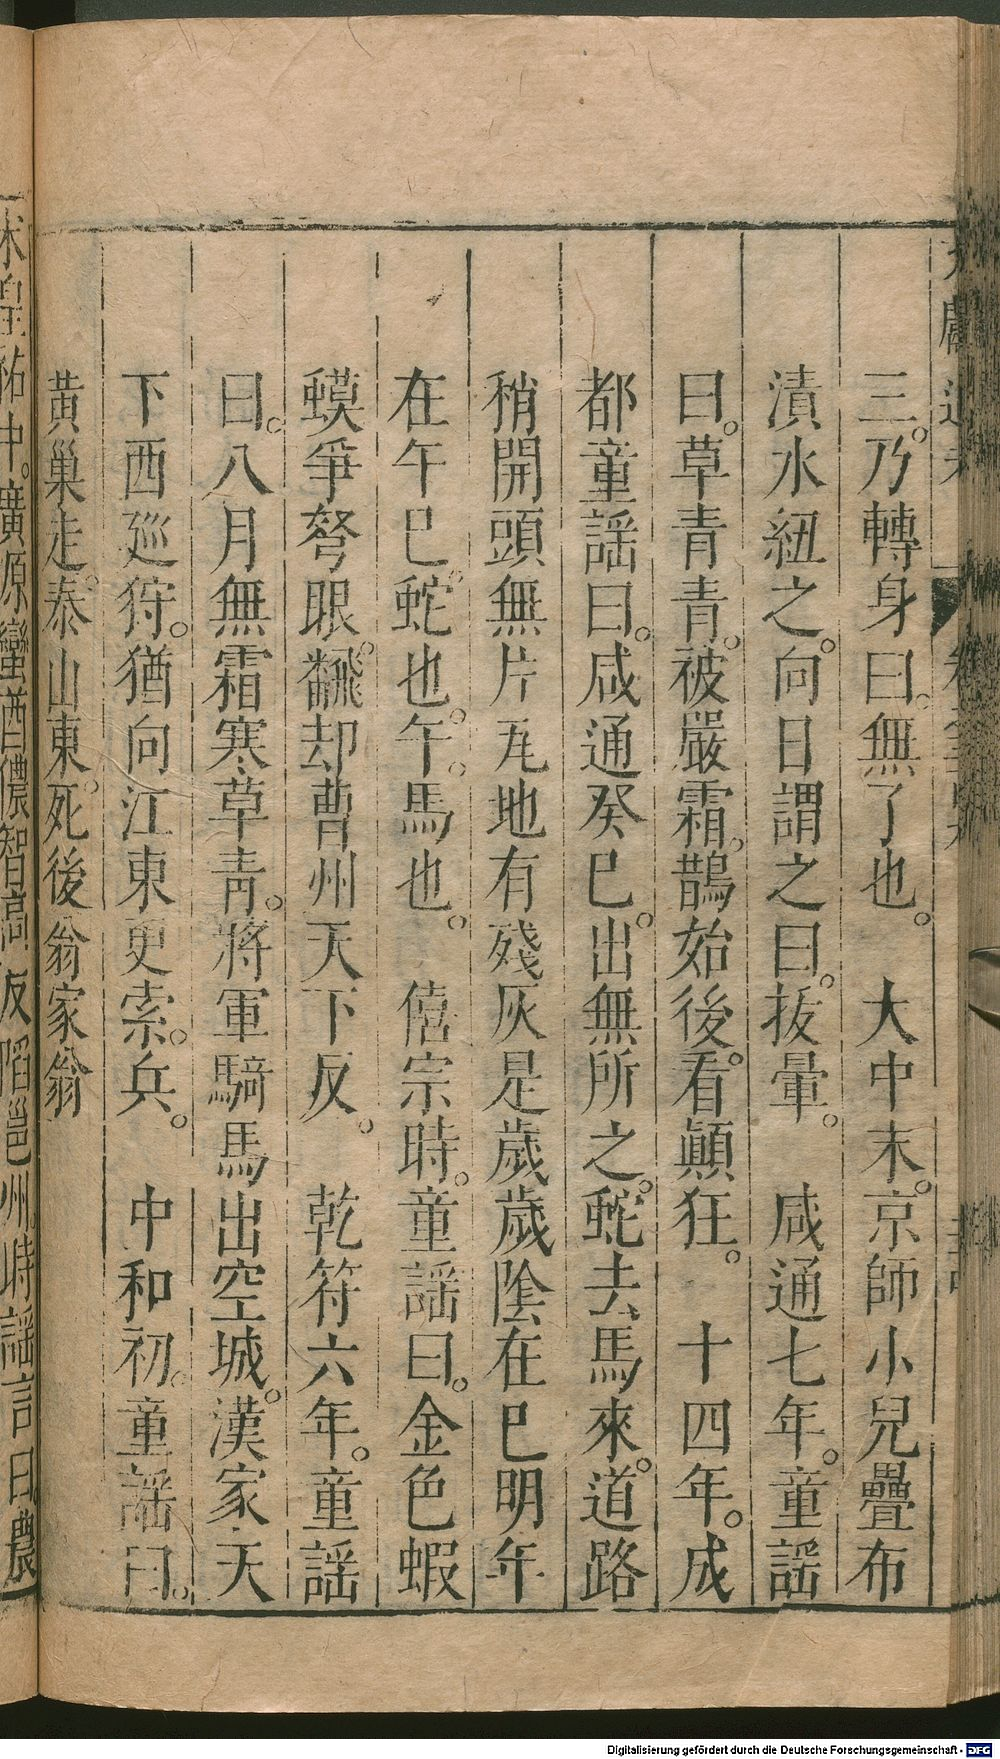 三乃轉身曰無了也。　大中末京師小兒疊布
漬水紐之向日謂之曰拔暈。　咸通七年童謡
曰草青青被嚴霜鵲始後看顚狂。　十四年成
都童謡曰咸通癸巳出無所之蛇去馬來道路
稍開頭無片瓦地有殘灰是歲歲陰在巳明年
在午巳蛇也午馬也。　僖宗時童謡曰金色蝦
蟆爭努眼飜却曹州天下反。　乾符六年童謡
曰八月無霜寒草青將軍騎馬出空城漢家天
下西廵狩猶向江東更索兵。　中和初童謡曰
黄巢走泰山東死後翁家翁
皇祐中廣源蠻酋儂智高反陷邕州時謡言曰農
Digitalisierung gefördert durch die Deutsche Forschungsgemeinschaft - DFG